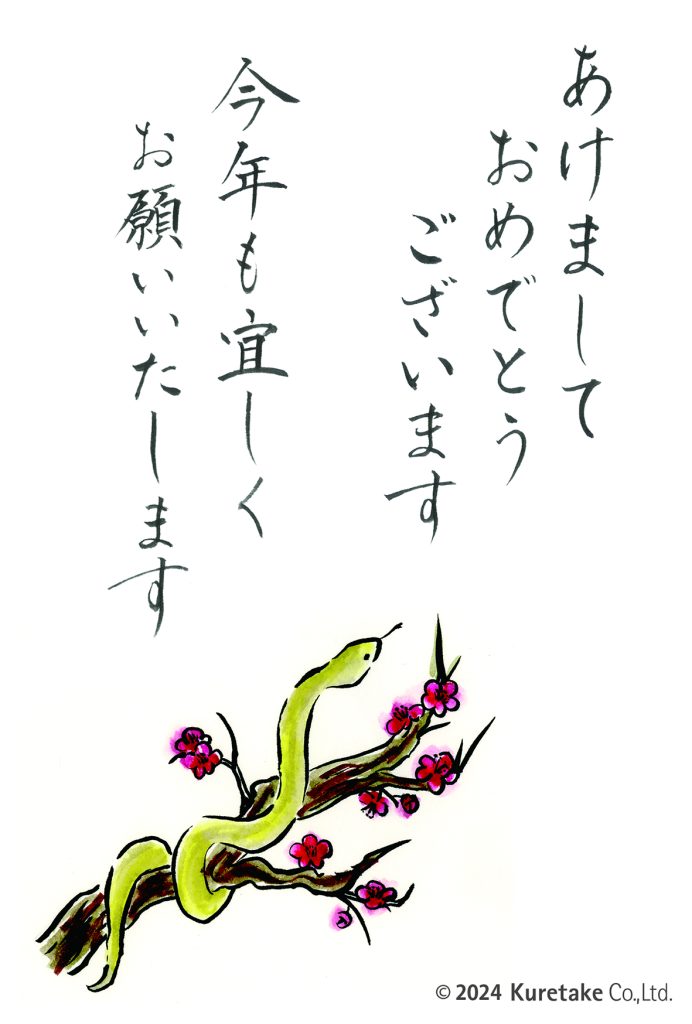 あけまして
おめでとう
ございます
今年も宜しく
お願いいたします
© 2024 Kuretake Co.,Ltd.